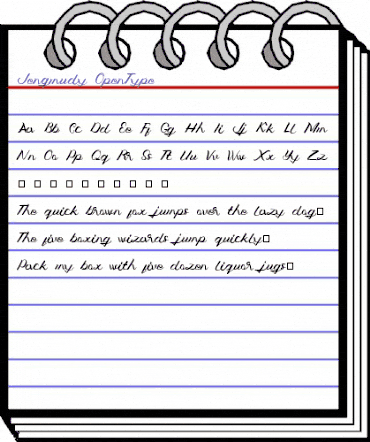 Jongmudy OpenType
Aa Bb Cc Dd Ee Ff Gg Hh Ii Jj Kk Ll Mm
Nn Oo Pp Qq Rr Ss Tt Uu Vv Ww Xx Yy Zz
□ □ □ □ □ □ □ □ □ □
The quick brown fox jumps over the lazy dog□
The five boxing wizards jump quickly□
Pack my box with five dozen liquor jugs□